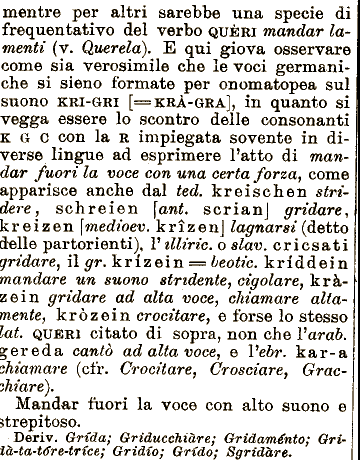 mentre per altri sarebbe una specie di
frequentativo del verbo QUÈRI mandar la-
menti (v. Querela). E qui giova osservare
come sia verosimile che le voci germani-
che si sieno formate per onomatopea sul
suono KRI-GRI [=KRÀ-GRA], in quanto si
vegga essere lo scontro delle consonanti
K G C con la R impiegata sovente in di-
verse lingue ad esprimere l'atto di man-
dar fuori la voce con una certa forza, come
apparisce anche dal ted. kreischen stri-
dere, schreien [ant. scrian] gridare,
kreizen [medioev. krîzen] lagnarsi (detto
delle partorienti), l'illiric. o slav. cricsati
gridare, il gr. krízein = beotic. kríddein
mandare un suono stridente, cigolare, krà-
zein gridare ad alta voce, chiamare alta-
mente, kròzein crocitare, e forse lo stesso
lat. QUERI citato di sopra, non che l'arab.
gereda cantò ad alta voce, e l'ebr. kar-a
chiamare (cfr. Crocitare, Crosciare, Grac-
chiare).
Mandar fuori la voce con alto suono e
strepitoso.
Deriv. Grída; Griducchiàre; Gridaménto; Gri-
dà-ta-tóre-tríce; Gridío; Grído; Sgridàre.